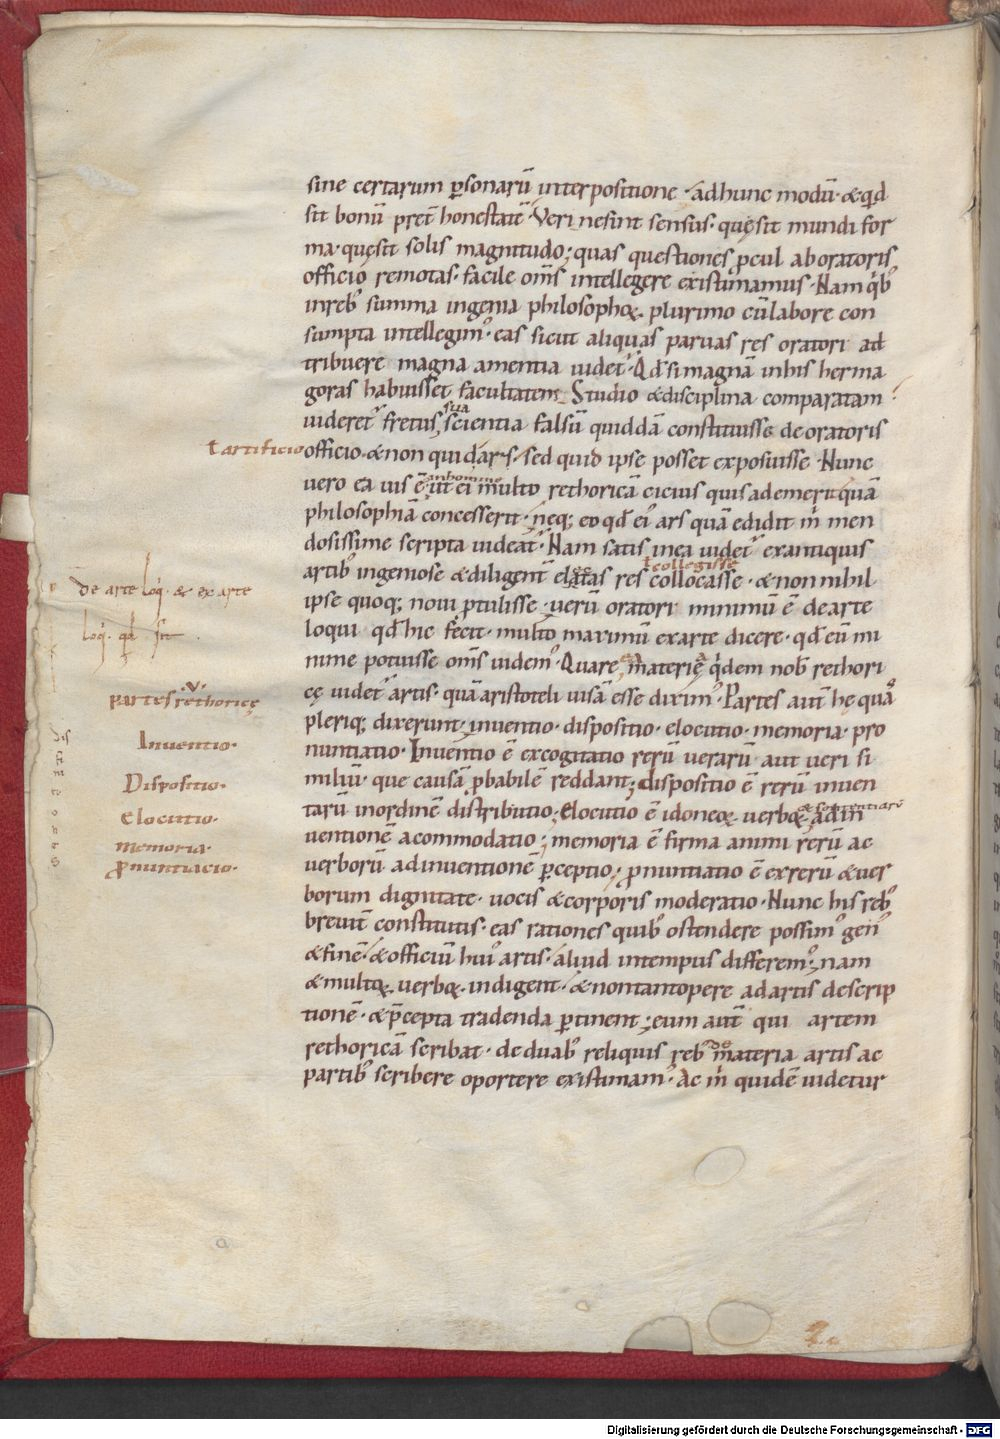 sine certarum ꝑsonarū interpositione · ad hunc modū · & qͥd
sit bonū pret̄ honestatē · Veri ne sint sensus · quęsit mundi for
ma · quęsit solis magnitudo ; quas questiones ꝓcul ab oratoris
officio remotas · facile om̄s intellegere existimamus · Nam qͥbꝰ
in rebꝰ summa ingenia philosophoꝝ plurimo cū labore con
sumpta intellegimꝰ · eas sicut aliquas paruas res oratori ad
tribuere magna amentia uidet᷑ · Qd̄ si magnā in his herma
goras habuisset facultatem Studio & disciplina comparatam
uideret᷑ fretus sua scientia falsū quiddā constituisse de oratoris
ł artificio
officio · & non quid ars · sed quid ipse posset exposuisse · Nunc
uero ea uis ē in homine ut ei multo rethoricā cicius quis ademerit quā
philosophiā concesserit · neq; eo qd̄ eiꝰ ars quā edidit m̄ men
dosissime scripta uideat᷑ · Nam satis in ea uidet᷑ ex antiquis
ł collegisse
artibꝰ ingeniose & diligent̄ electas res collocasse · & non nihil
de arte loq̇ · & ex arte
loq̇ · qd̄ sit ·
ipse quoq; noui ꝓtulisse · uerū oratori minimū ē de arte
loqui qd̄ hic fecit · multo maximū ex arte dicere · qd̄ eū mi
nime potuisse om̄s uidemꝰ · Quare materię qͥdem nob̄ rethori
·v·
partes rethoricę
cę uidet᷑ artis · quā aristoteli uisā esse diximꝰ · Partes aut̄ hę quas
pleriq; dixerunt · inuentio · dispositio · elocutio · memoria · pro
Inuentio ·
nuntiatio · Inuentio ē excogitatio rerū uerarū · aut ueri si
miliū · que causā ꝓbabilē reddant ; dispositio ē rerū inuen
Dispositio ·
tarū in ordinē distributio ; elocutio ē idoneoꝝ uerboꝝ & sententiarū ad in
elocutio ·
uentionē acommodatio ; memoria ē firma animi rerū ac
memoria ·
uerborū ad inuentionē ꝑceptio ; ꝓnuntiatio ē ex rerū & uer
ꝓnuntiacio ·
borum dignitate · uocis & corporis moderatio · Nunc his rebꝰ
breuit̄ constitutis · eas rationes quibꝰ ostendere possimꝰ genꝰ
& finē · & officiū huiꝰ artis · aliud in tempus differemꝰ ; nam
& multoꝝ uerboꝝ indigent · & non tantopere ad artis descrip
tionē · & p̄cepta tradenda ꝑtinent ; eum aut̄ qui artem
rethoricā scribat · de duabꝰ reliquis rebꝰ de materia artis ac
partibꝰ scribere oportere existimamꝰ · Ac m̄ quidē uidetur
Digitalisierung gefördert durch die Deutsche Forschungsgemeinschaft - DFG